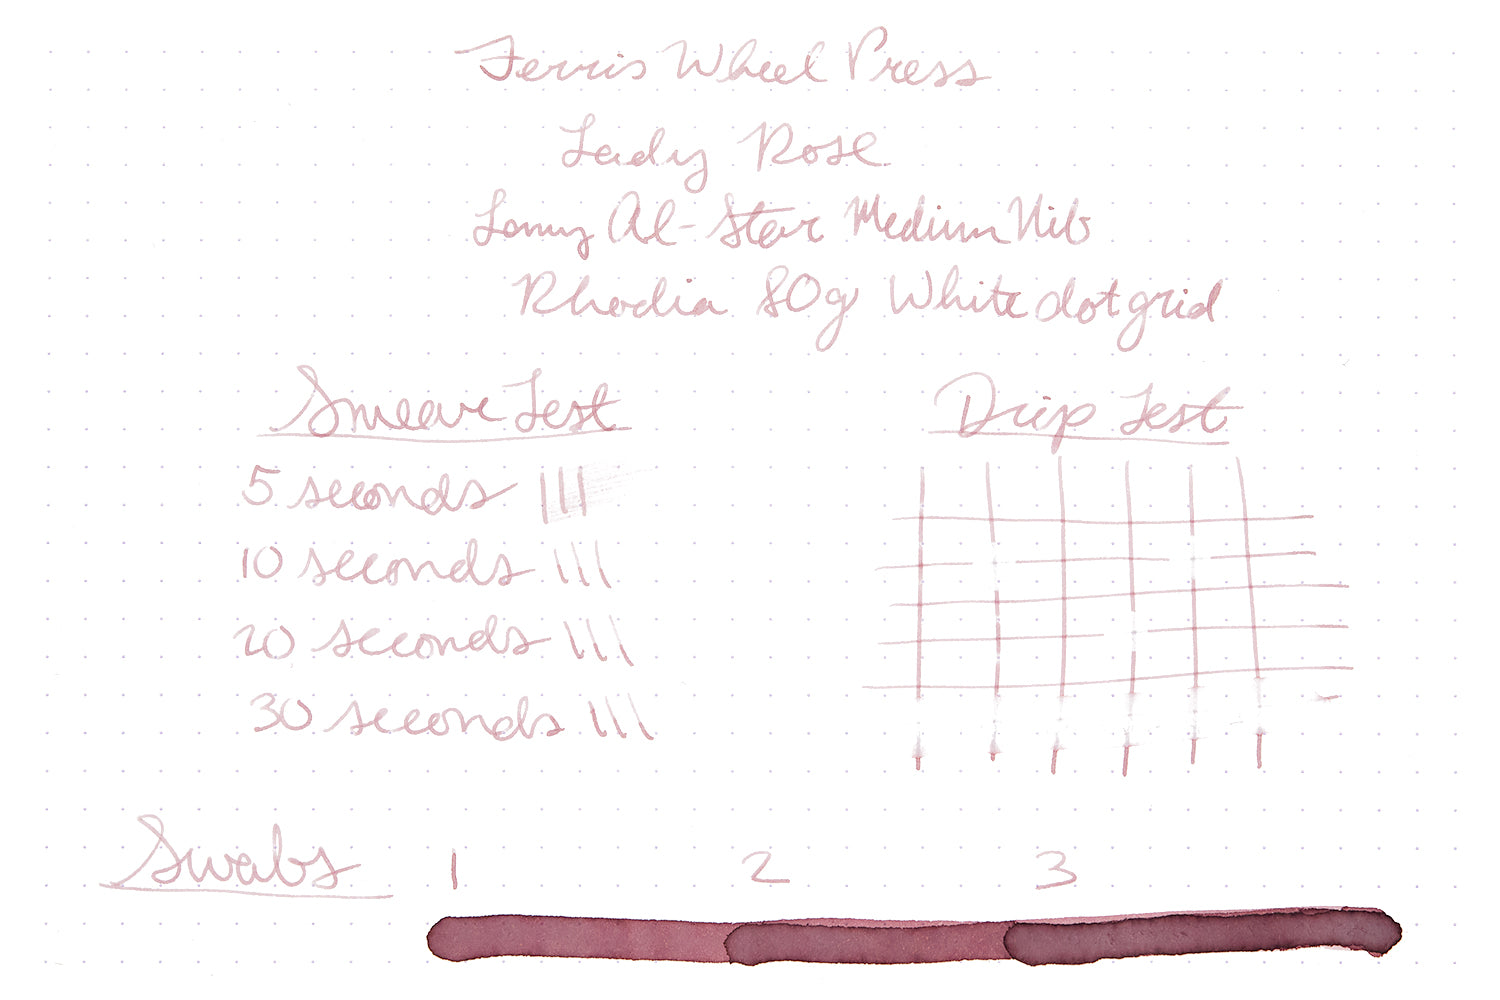 Ferris Wheel Press
Lady Rose
Lamy Al-Star Medium Nib
Rhodia 80g White dot grid
Smear Test
Drip Test
5 seconds
10 seconds
20 seconds
30 seconds
Swabs 1 2 3